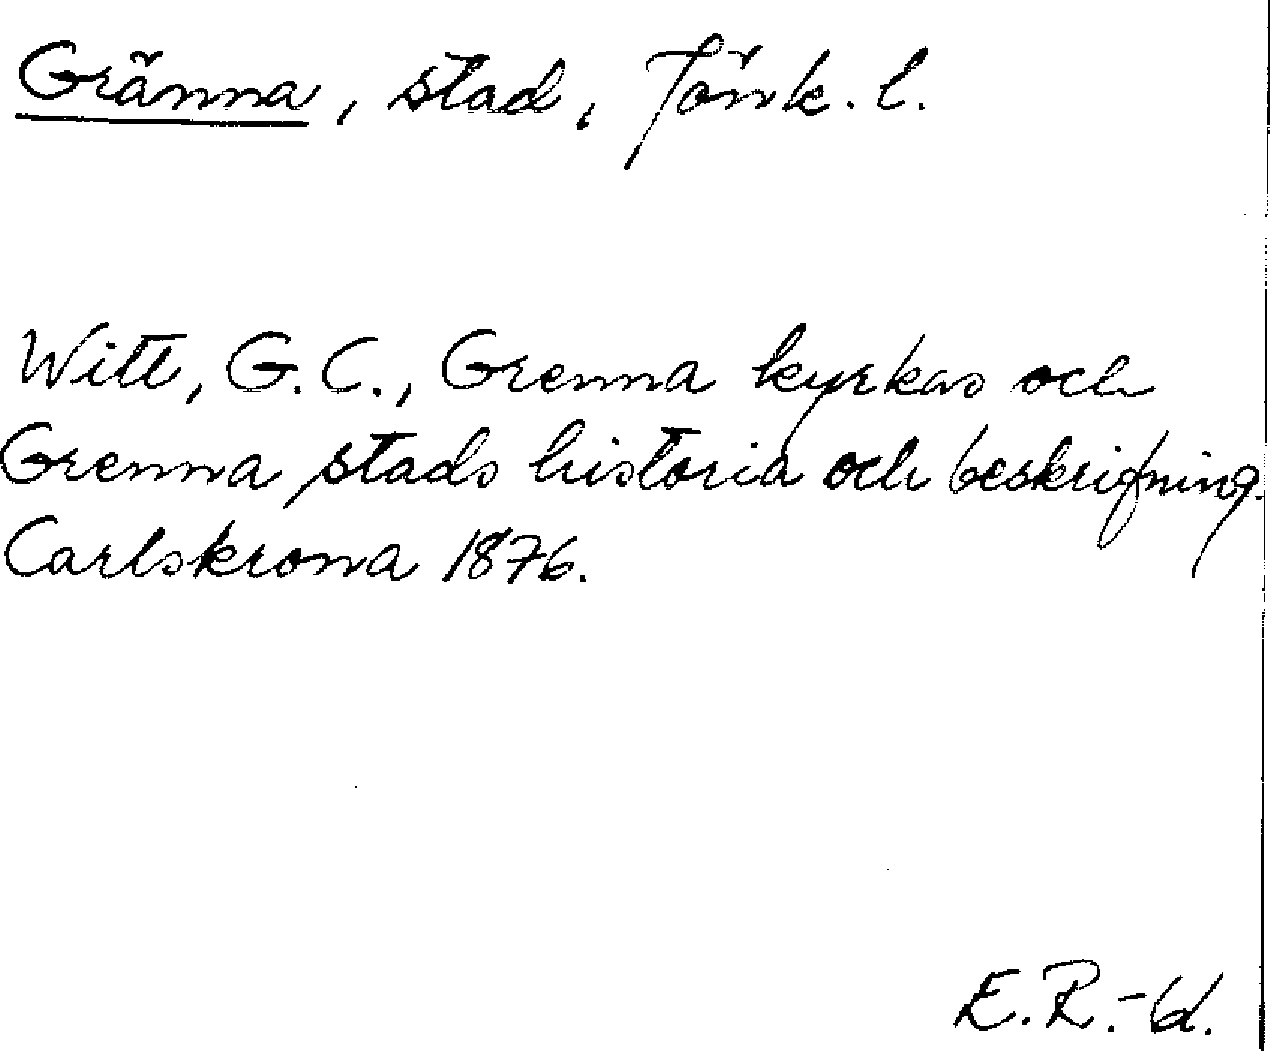 Gränna, stad, Jönk. l.
Witt, G.C., Grenna kyrkas och
Grenna stads historia och beskrifning.
Carlskrona 1876.
E.R.-U.